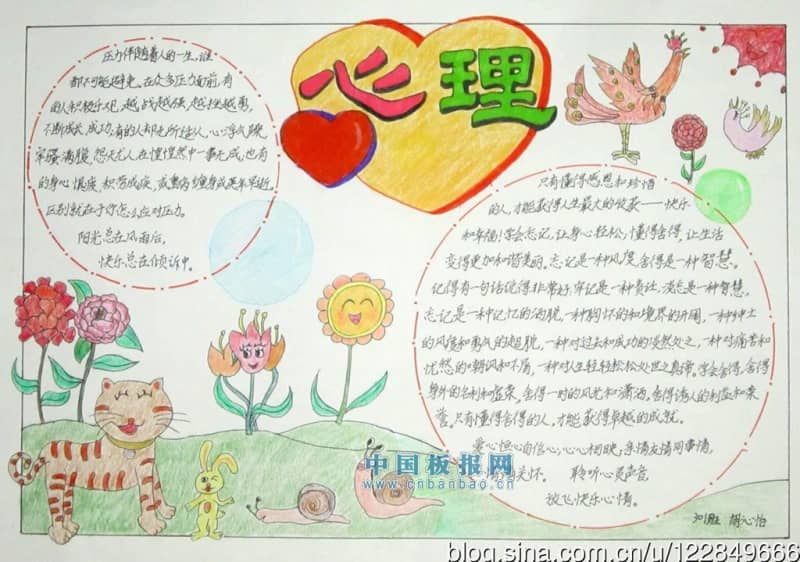 心理
压力伴随着人的一生，谁
都不可能避免。在众多压力面前，有
的人积极乐观，越战越强，越挫越勇，
不断成长、成功。有的人却无所适从，心浮气躁，
牢骚满腹，怨天尤人，在惶惶然中一事无成，也有
的身心俱疲，积劳成疾，或重病缠身或英年早逝。
区别就在于你怎么应对压力。
阳光总在风雨后，
快乐总在倾诉中。
只有懂得感恩和珍惜
的人，才能获得人生最大的收获——快乐
和幸福！学会忘记，让身心轻松；懂得舍得，让生活
变得更加和谐美丽。忘记是一种风度，舍得是一种智慧。
记得有一句话说得非常好：牢记是一种责任，淡忘是一种智慧。
忘记是一种记忆的洒脱，一种胸怀的和境界的开阔，一种绅士
的风度和勇气的超脱，一种对过去和成功的淡然处之，一种对痛苦和
忧愁的嘲讽和不屑，一种对人生轻轻松松处世之真谛。学会舍得，舍得
身外的名利和虚荣，舍得一时的风光和潇洒，舍得诱人的利益和荣
誉。只有懂得舍得的人，才能获得卓越的成就。
爱心恒心自信心，心心相映，亲情友情同事情，
关怀。 聆听心灵声音，
放飞快乐心情。
胡心怡
中国板报网
www.cnbanbao.cn
blog.sina.com.cn/u/122849666